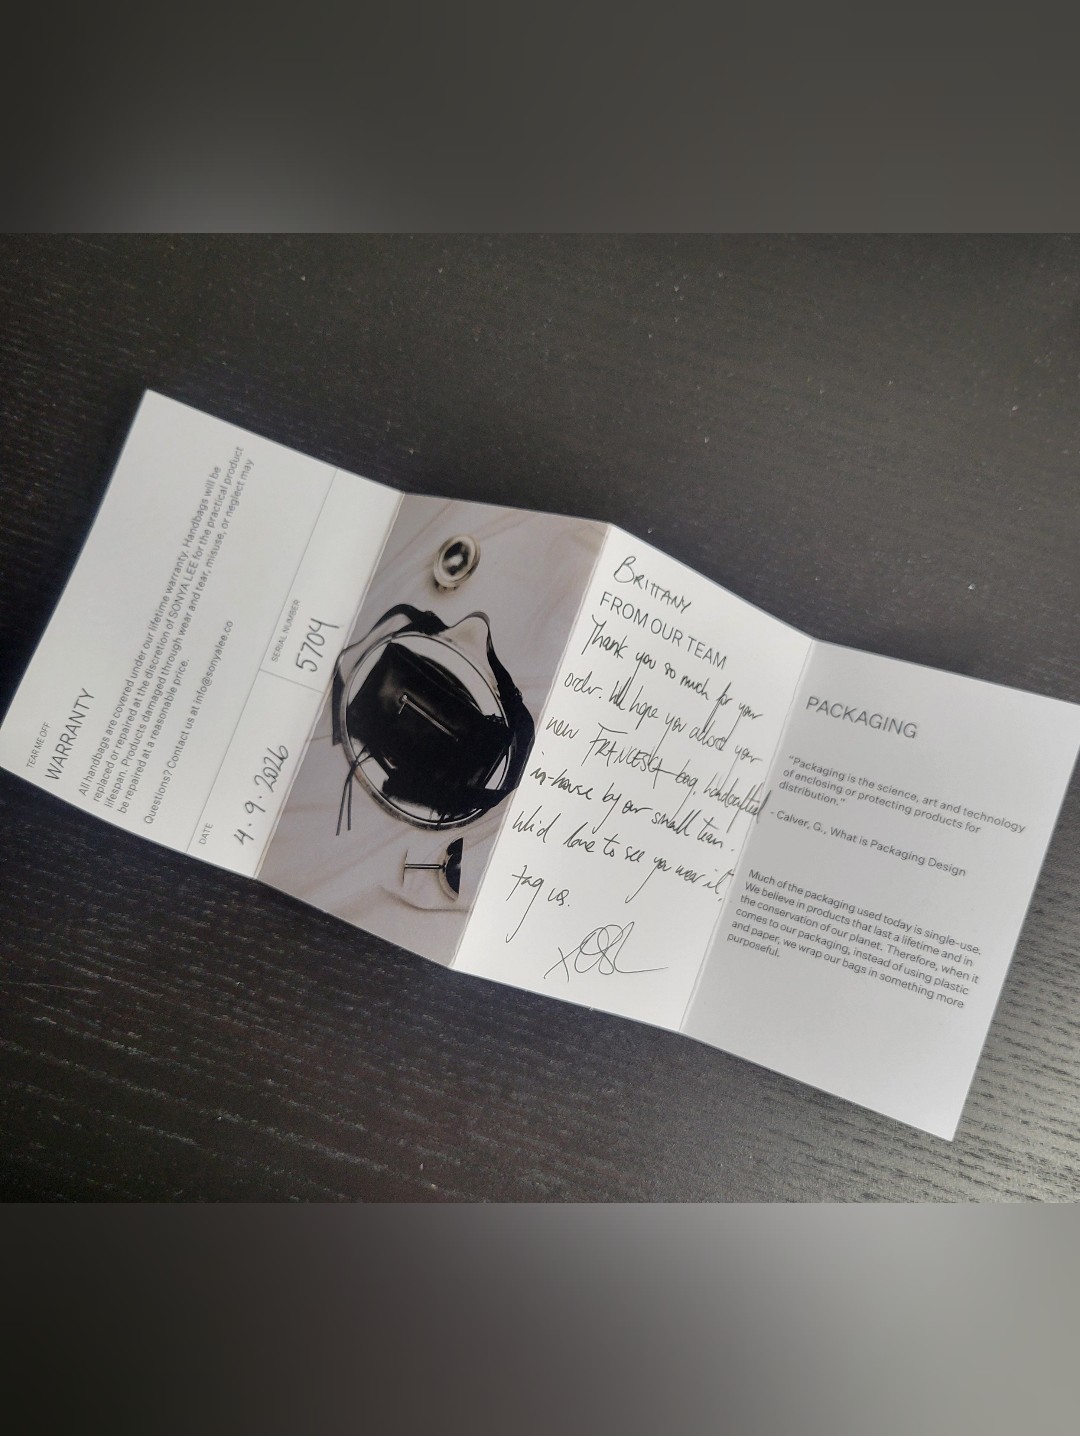 TEAR ME OFF
WARRANTY
All handbags are covered under our lifetime warranty. Handbags will be
replaced or repaired at the discretion of SONYA LEE for the practical product
lifespan. Products damaged through wear and tear, misuse, or neglect may
be repaired at a reasonable price.
Questions? Contact us at info@sonyalee.co
DATE
4.9.2026
SERIAL NUMBER
5704
BRITTANY
FROM OUR TEAM
Thank you so much for your
order. We hope you adore your
new FRANCESCA bag, handcrafted
in-house by our small team.
We'd love to see you wear it,
tag us.
xOSL
PACKAGING
"Packaging is the science, art and technology
of enclosing or protecting products for
distribution."
- Calver, G., What is Packaging Design
Much of the packaging used today is single-use.
We believe in products that last a lifetime and in
the conservation of our planet. Therefore, when it
comes to our packaging, instead of using plastic
and paper, we wrap our bags in something more
purposeful.